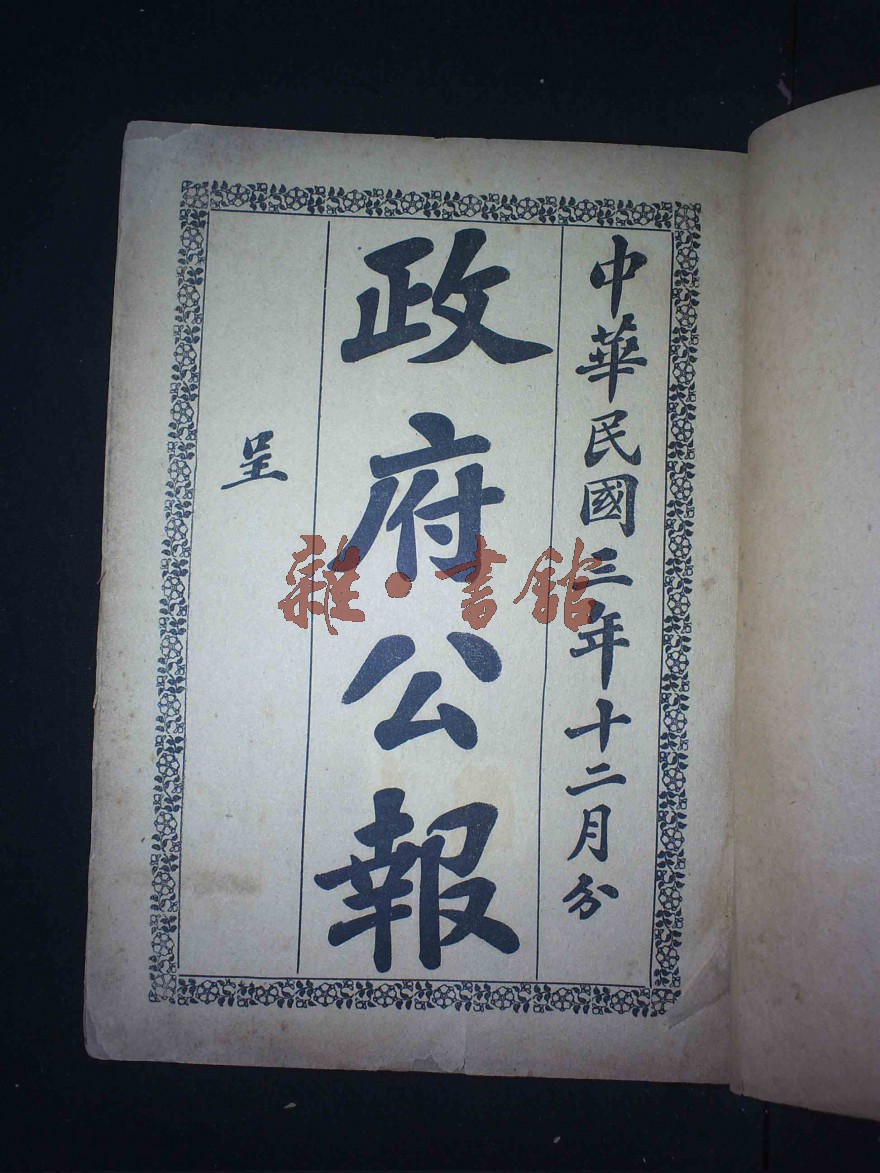 中華民國三年十二月分
政府公報
呈
雜·書館